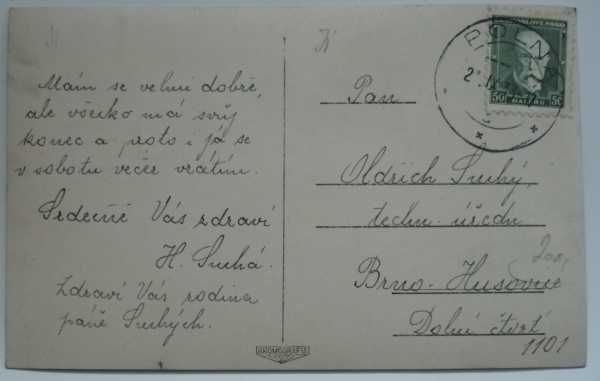 Mám se velmi dobře,
ale všecko má svůj
konec a proto i já se
v sobotu večer vrátím.
Srdečně Vás zdraví
H. Suchá.
Zdraví Vás rodina
páně Suchých.
BROMOGRAFIA
POLNÁ
ČESKOSLOVENSKO
50 50
HALÉŘŮ
Pan
Oldřich Suchý,
techn. úředn
Brno-Husovice
Dolní čtvrť
1101